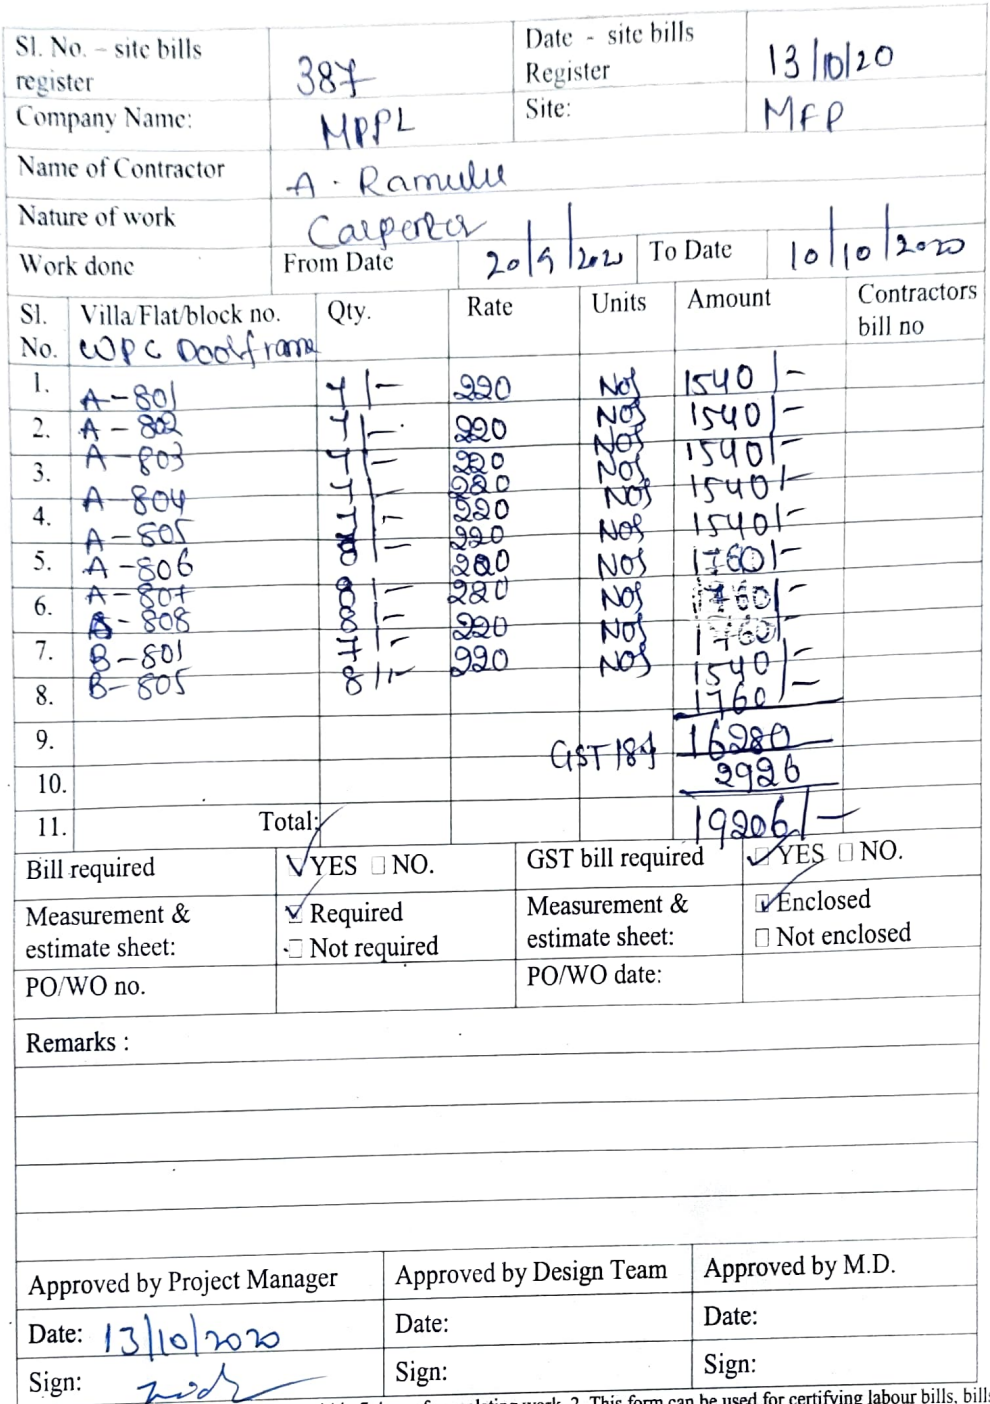 Sl. No. – site bills register 387 Date - site bills Register 13/10/20
Company Name: MPPL Site: MFP
Name of Contractor A. Ramulu
Nature of work Carpenter
Work done From Date 20/9/2020 To Date 10/10/2020
Sl. No. Villa/Flat/block no. Qty. Rate Units Amount Contractors bill no
WPC Doorframe
1. A-801 7/- 220 Nos 1540/-
2. A-802 7/- 220 Nos 1540/-
3. A-803 7/- 220 Nos 1540/-
A-804 7/- 220 Nos 1540/-
4. A-805 7/- 220 Nos 1540/-
5. A-806 8/- 220 Nos 1760/-
6. A-807 8/- 220 Nos 1760/-
A-808 8/- 220 Nos 1760/-
7. B-801 7/- 220 Nos 1540/-
8. B-805 8/- 220 Nos 1760/-
9. 16280
10. GST 18% 2926
11. Total: 19206/-
Bill required YES NO. GST bill required YES NO.
Measurement & estimate sheet: Required Not required Measurement & estimate sheet: Enclosed Not enclosed
PO/WO no. PO/WO date:
Remarks :
Approved by Project Manager Approved by Design Team Approved by M.D.
Date: 13/10/2020 Date: Date:
Sign: Sign: Sign:
2. This form can be used for certifying labour bills, bill